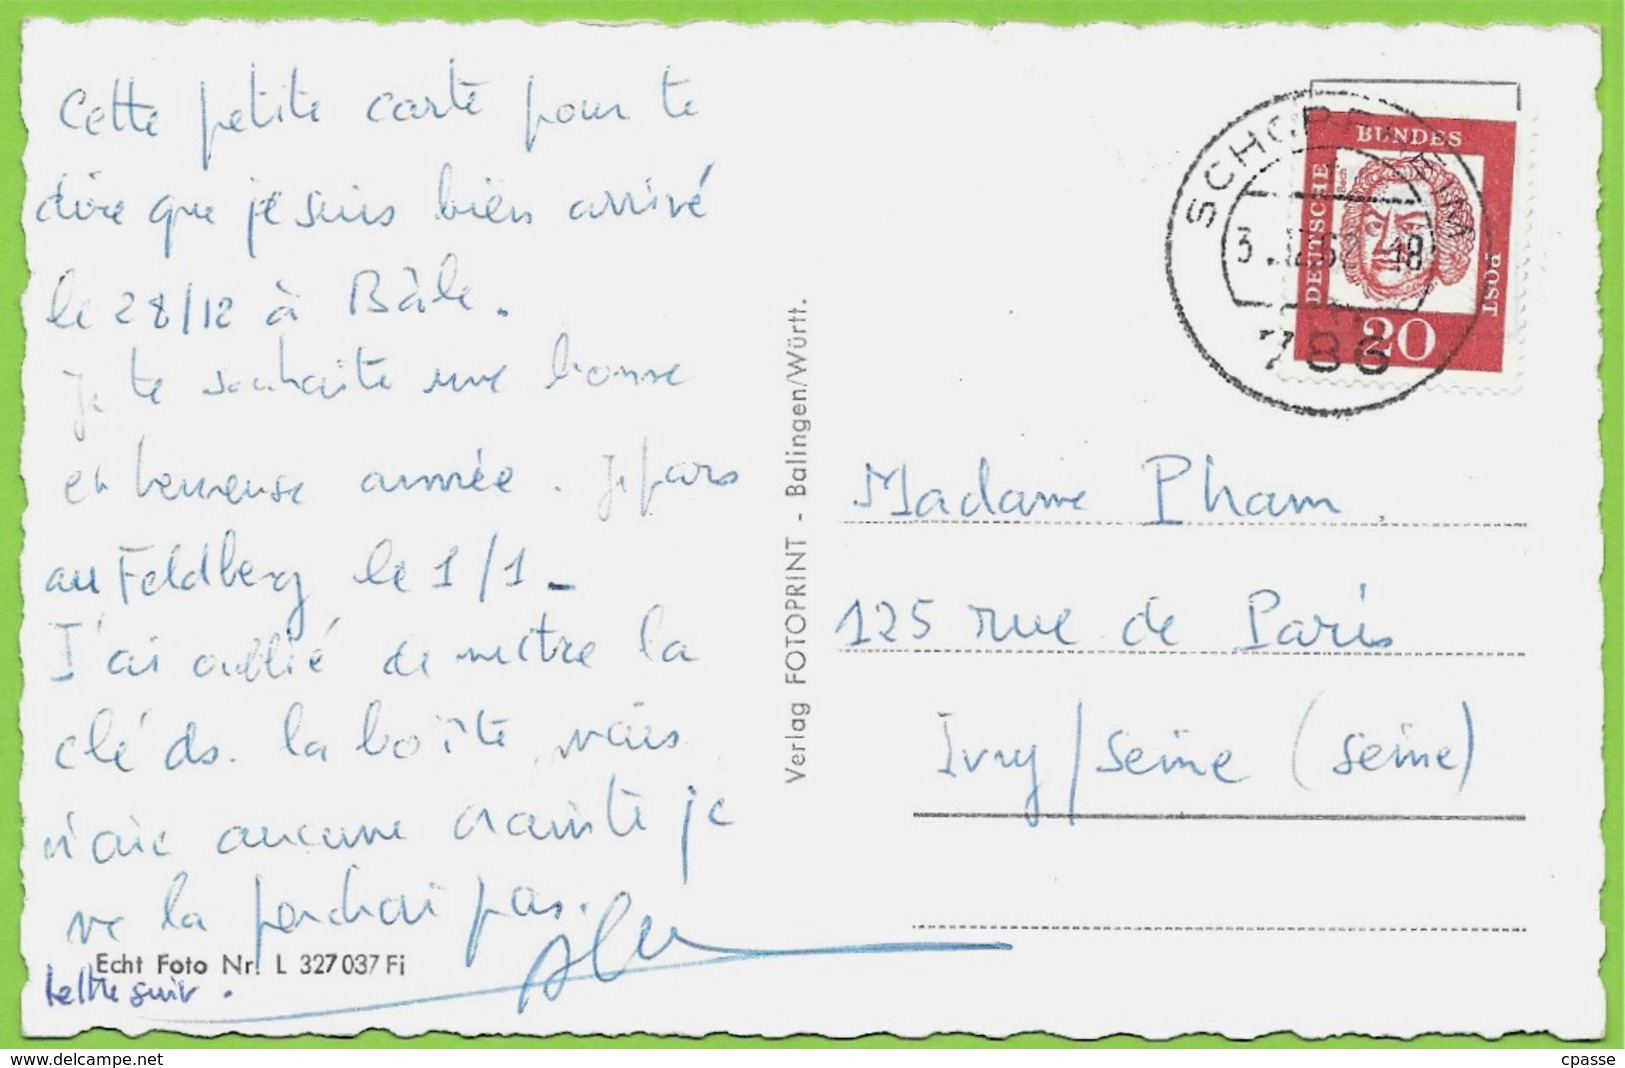 Cette petite carte pour te
dire que je suis bien arrivé
le 28/12 à Bâle.
Je te souhaite une bonne
et heureuse année. Je pars
au Feldberg le 1/1 -
J'ai oublié de mettre la
clé ds. la boîte, mais
n'aie aucune crainte je
ne la perdrai pas.
Echt Foto Nr. L 327037 Fi
lettre suit.
Verlag FOTOPRINT - Balingen/Württ.
SCHOPFHEIM
62
18
786
DEUTSCHE
BUNDES
POST
Bach
20
Madame Pham.
125 rue de Paris
Ivry/Seine (Seine)
cpasse
www.delcampe.net